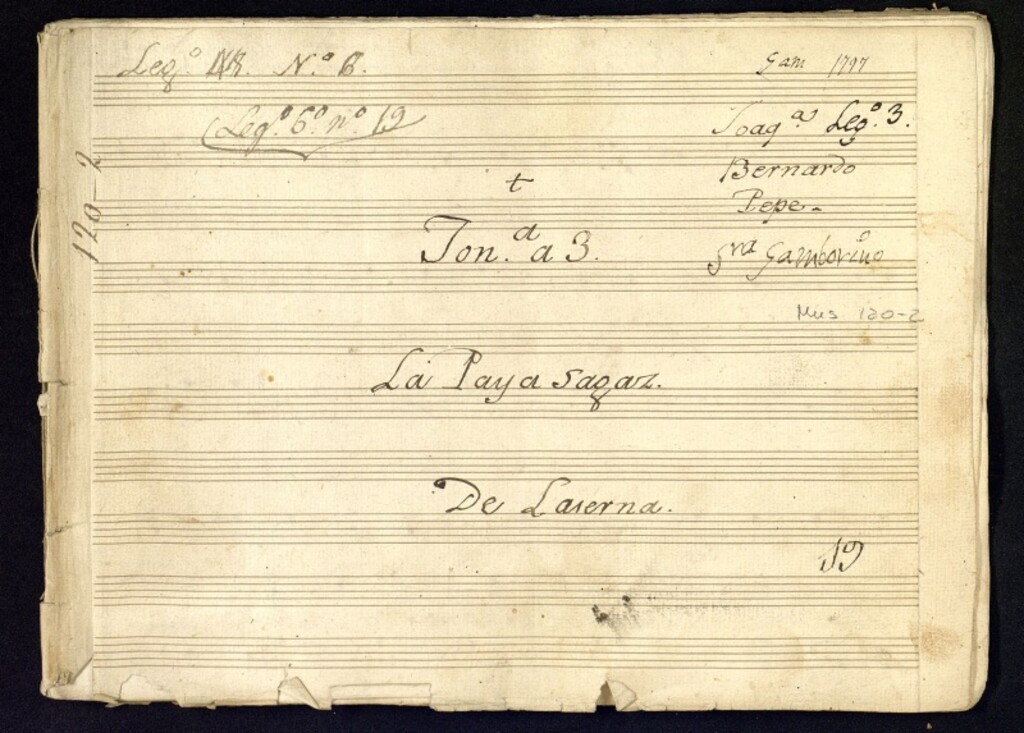 Legº. 48. N.º 6.
Gam 1797
Legº. 6º nº 19
Joaqª Legº. 3.
Bernardo
Pepe -
Sra Gamborino
120-2
+
Ton.ª a 3.
Mus 120-2
La Paya sagaz.
De Laserna.
19